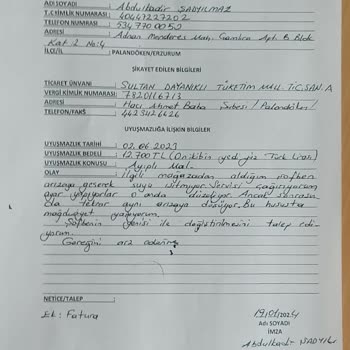 ADI SOYADI : Abdulkadir SADYILMAZ
T.C.KİMLİK NUMARASI: 40447227202
TELEFON NUMARASI : 534 770 00 50
ADRESİ : Adnan Menderes Mah. Apt. B Blok
Kat 2 No:4
İLÇE/İL : PALANDÖKEN/ERZURUM
ŞİKAYET EDİLEN BİLGİLERİ
TİCARET ÜNVANI : SULTAN DAYANIKLI TÜKETİM MALL. TİC. SAN. A
VERGİ KİMLİK NUMARASI: 7820116713
ADRESİ : Hacı Ahmet Baba Şubesi / Palandöken /
TELEFON/FAKS : 4423426626
UYUŞMAZLIĞA İLİŞKİN BİLGİLER
UYUŞMAZLIK TARİHİ : 02.06.2023
UYUŞMAZLIK BEDELİ : 12.700 TL (Onikibin yedi yüz Türk Lirası)
UYUŞMAZLIK KONUSU : Ayıplı Mal
OLAY : İlgili mağazadan aldığım şofben
arızaya geçerek suyu ısıtmıyor. Servisi çağırıyorum
ayar yapıyorlar o anda düzeliyor. Ancak sonrasın
da tekrar aynı arızaya düşüyor. Bu hususta
mağduriyet yaşıyorum.
Şofbenin yenisi ile değiştirilmesini talep edi
yorum.
Gereğini arz ederim.
NETİCE/TALEP :
Ek: Fatura
19/01/2024
Adı SOYADI
İMZA